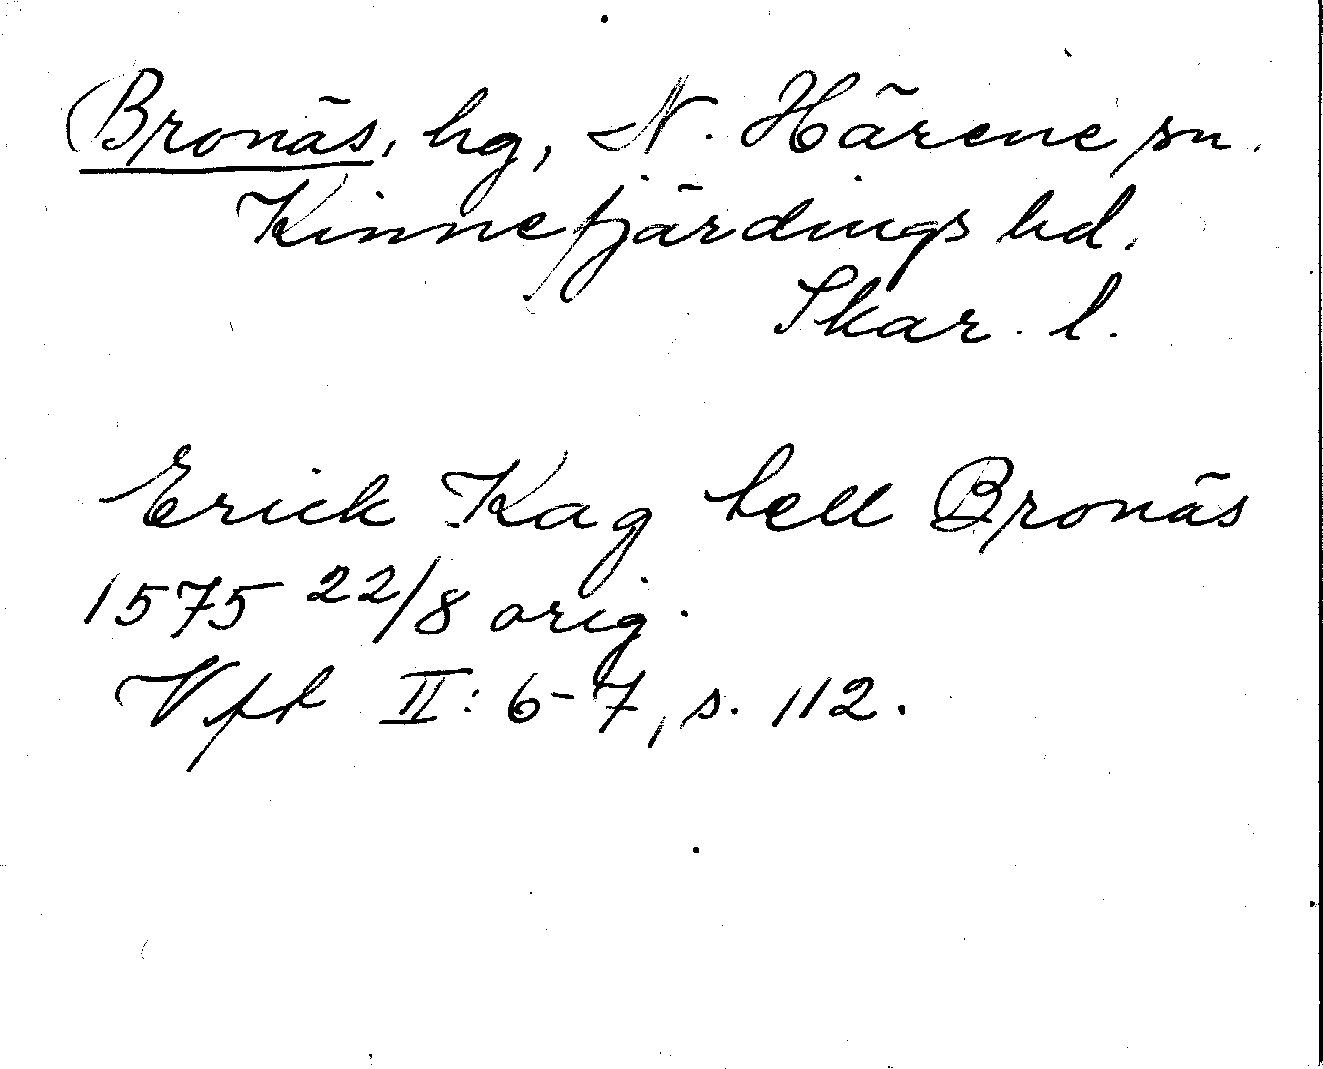 Bronäs, hg, N. Härene sn.
Kinnefjärdings hd.
Skar. l.
Erick Kag tell Bronäs
1575 22/8 orig.
Vft II: 6-7, s. 112.